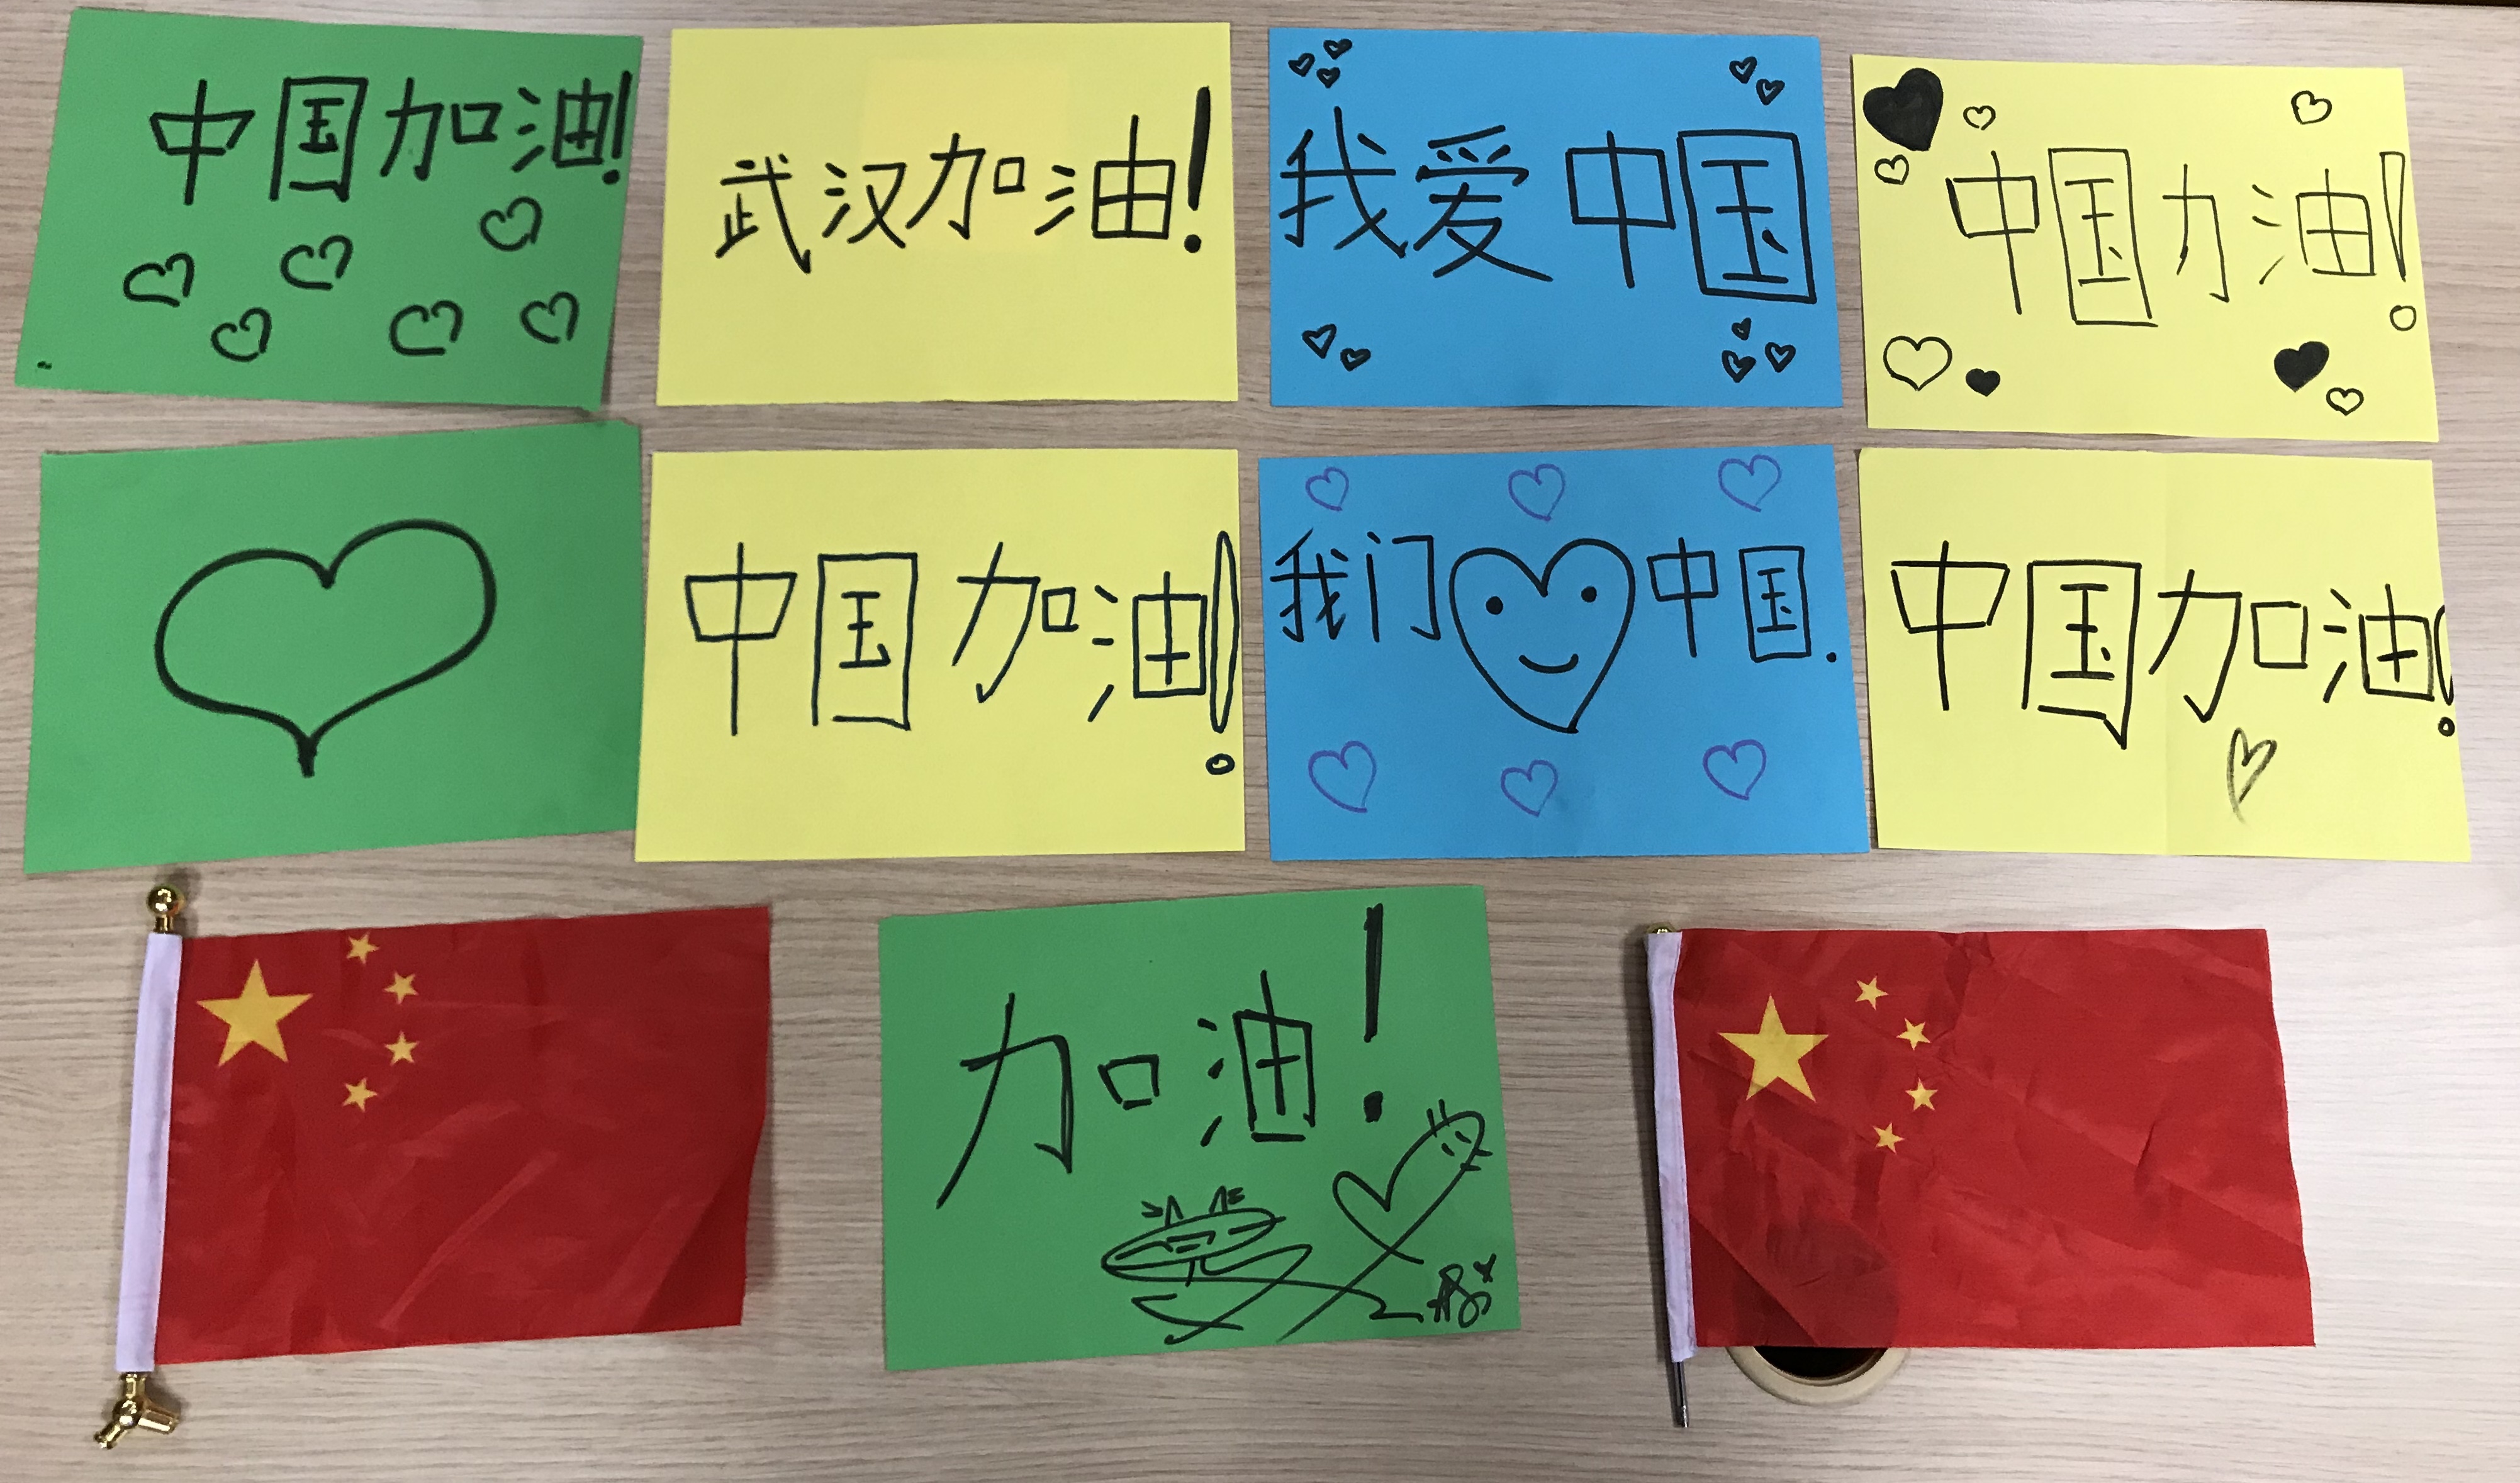 中国加油!
武汉加油!
我爱中国
中国力油!
中国加油!
我门 中国.
中国加油!
加油!